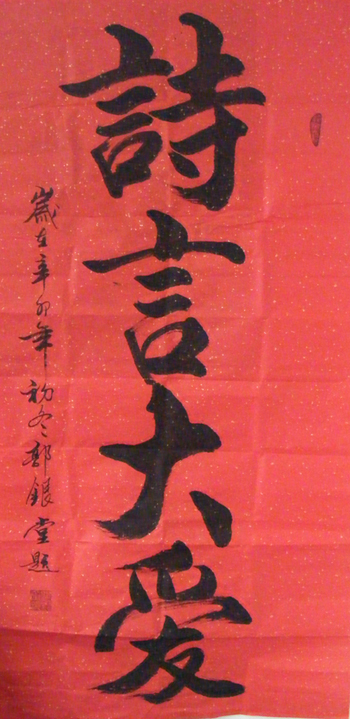 詩言大爱
歲在辛卯年初冬郭銀堂题